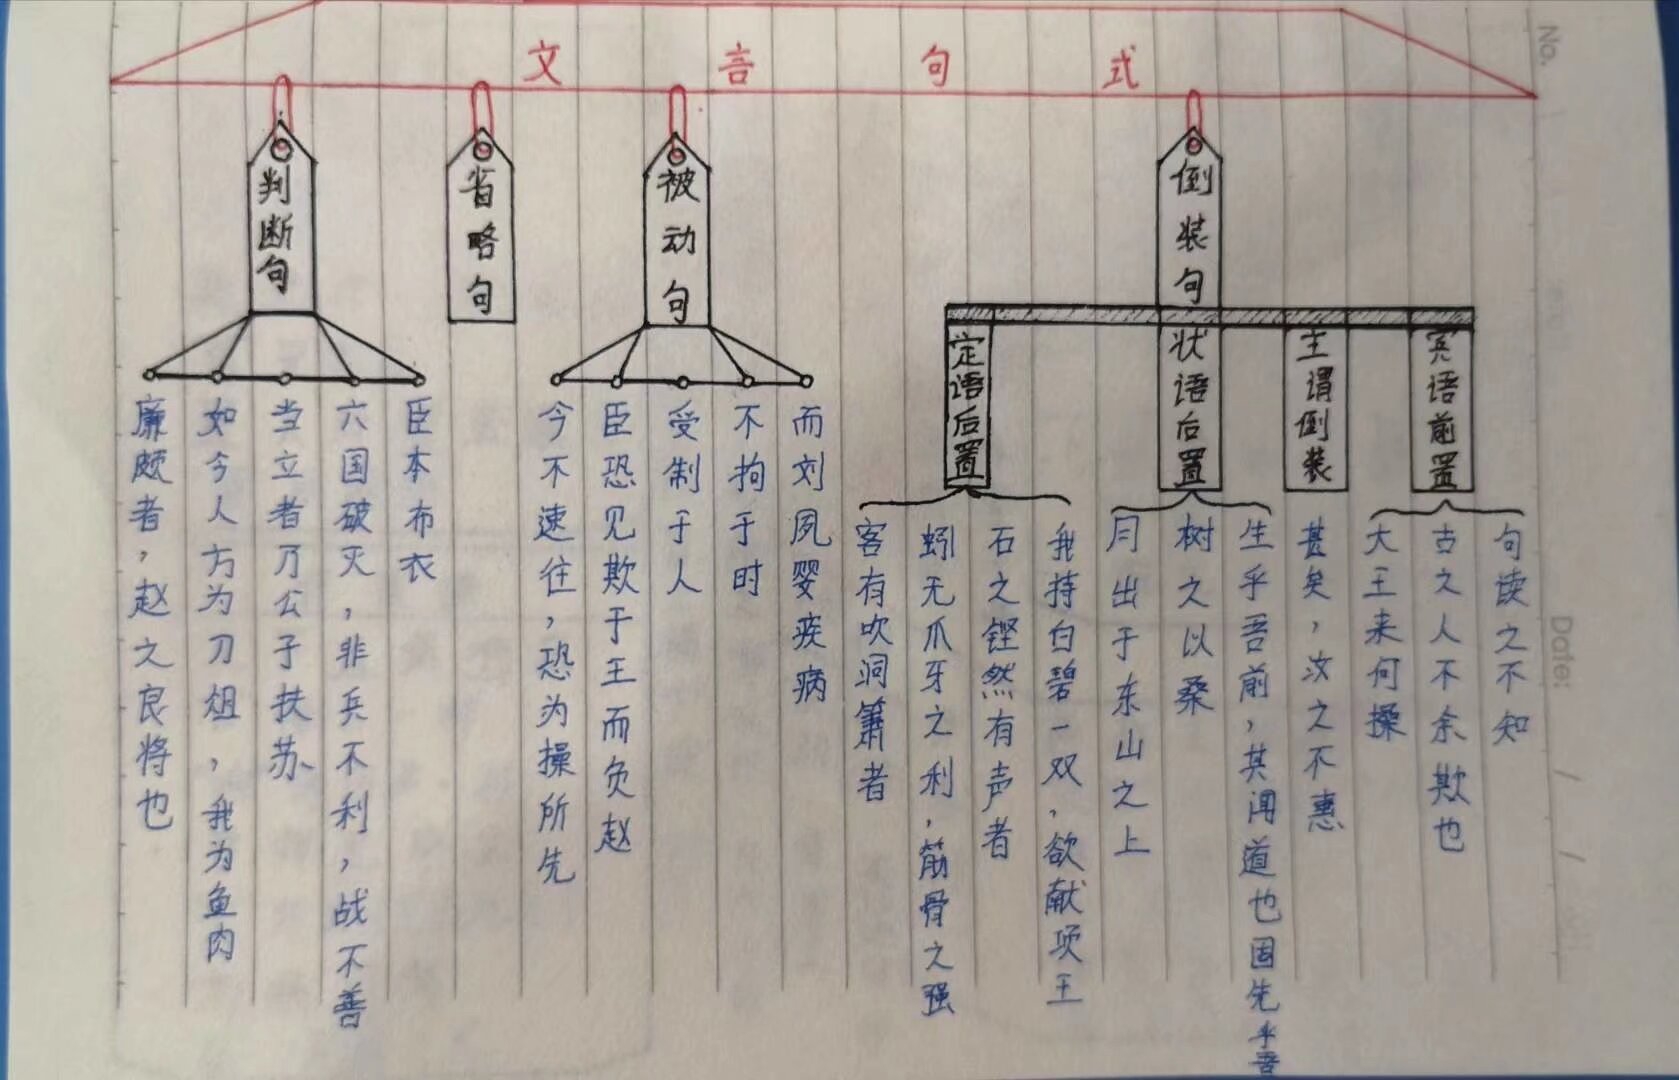 文言句式
判断句
廉颇者，赵之良将也
如今人方为刀俎，我为鱼肉
当立者乃公子扶苏
六国破灭，非兵不利，战不善
臣本布衣
省略句
被动句
今不速往，恐为操所先
臣恐见欺于王而负赵
受制于人
不拘于时
而刘夙婴疾病
倒装句
定语后置
客有吹洞箫者
蚓无爪牙之利，筋骨之强
石之铿然有声者
我持白碧一双，欲献项王
状语后置
月出于东山之上
树之以桑
生乎吾前，其闻道也固先乎吾
主谓倒装
甚矣，汝之不惠
宾语前置
大王来何操
古之人不余欺也
句读之不知
No.
Date: